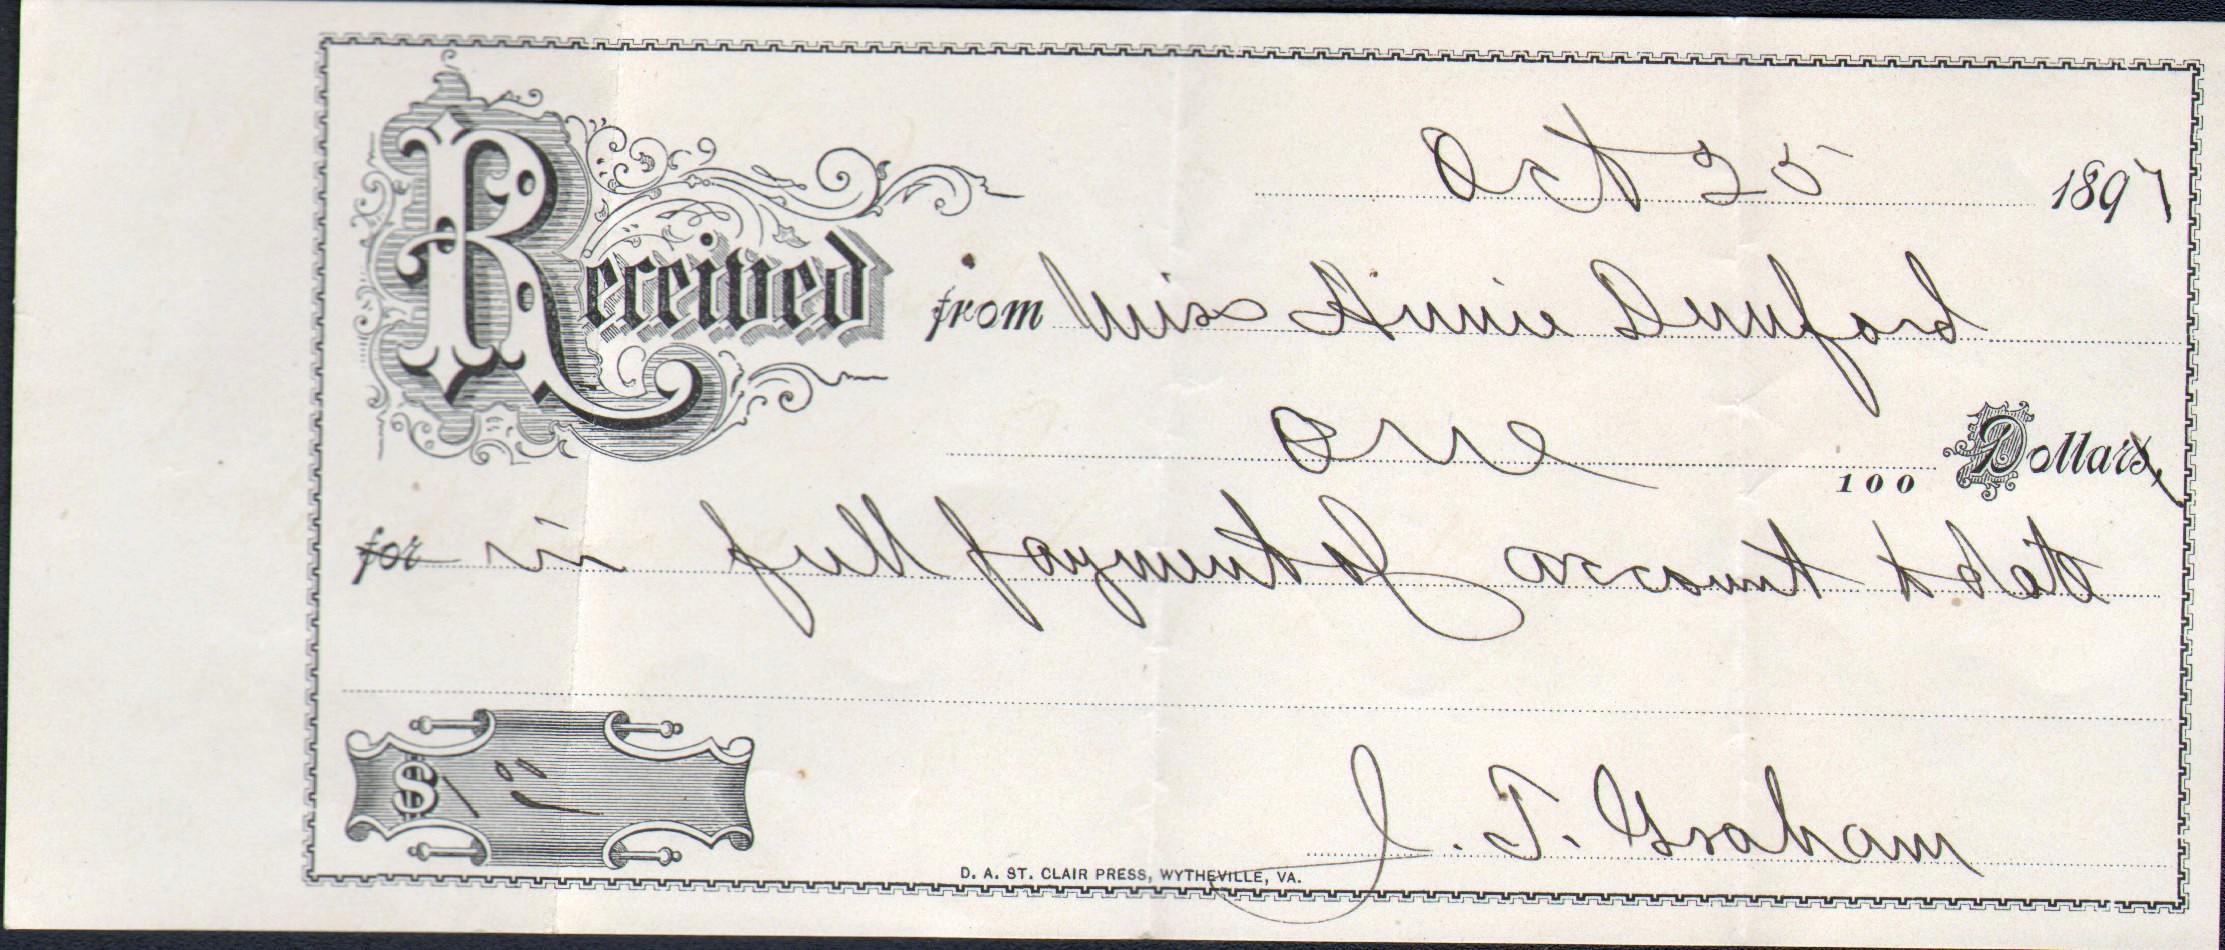 Oct 25 1897
Received from Miss Annie Dunford
One 100 Dollars
for in full payment of account to date
$ 1
J. T. Graham
D. A. ST. CLAIR PRESS, WYTHEVILLE, VA.